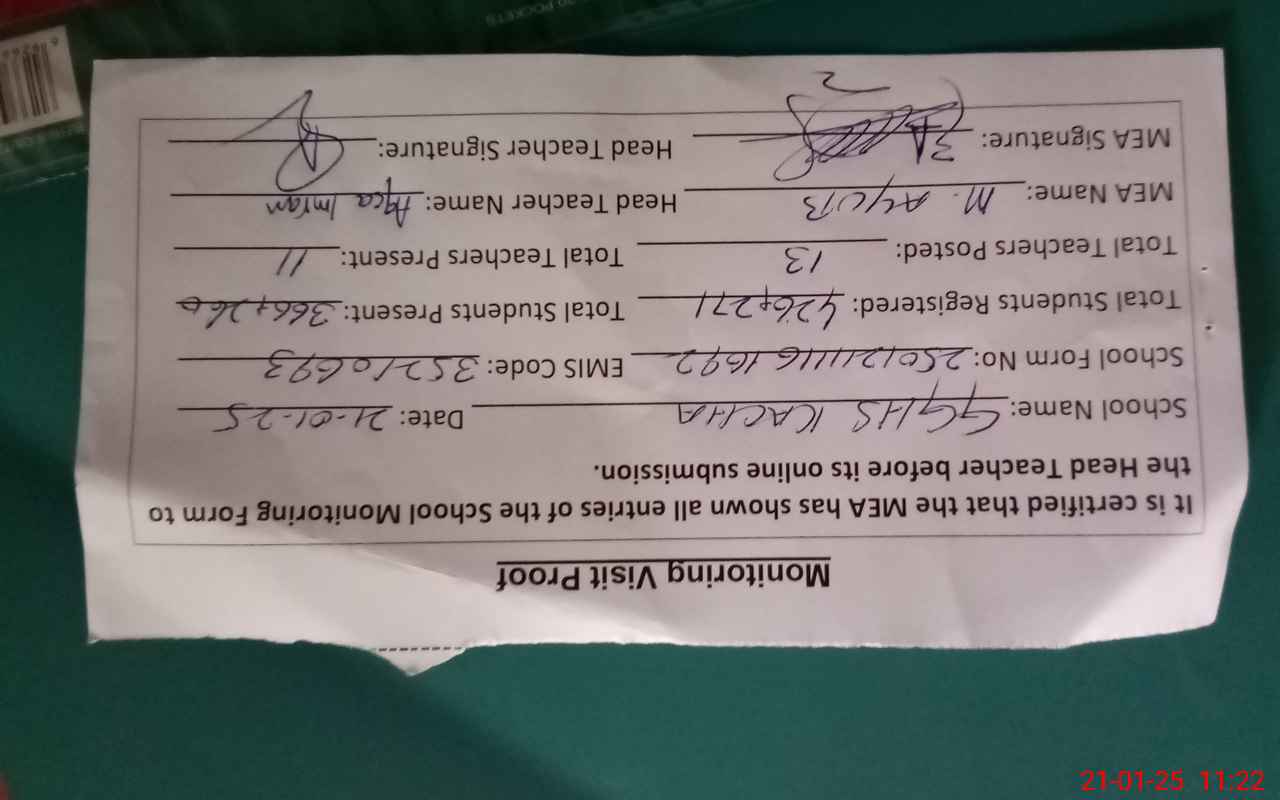 Monitoring Visit Proof
It is certified that the MEA has shown all entries of the School Monitoring Form to
the Head Teacher before its online submission.
School Name: GGHS KACHA Date: 21-01-25
School Form No: 2501211116 1692 EMIS Code: 35210693
Total Students Registered: 426+271 Total Students Present: 366+260
Total Teachers Posted: 13 Total Teachers Present: 11
MEA Name: M. AYUB Head Teacher Name: Aqca Imran
MEA Signature: Head Teacher Signature:
20 POCKETS
21-01-25 11:22